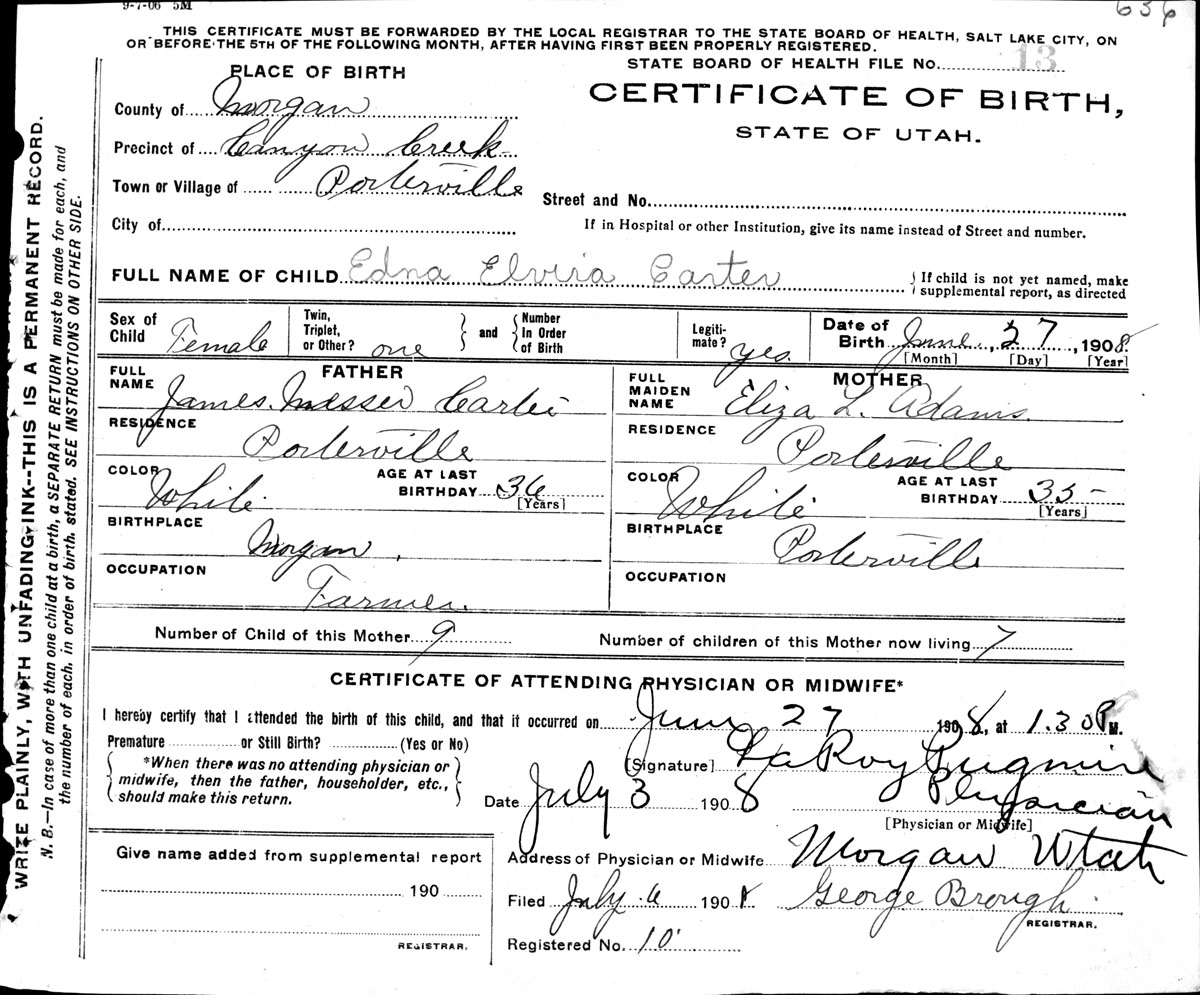 9-7-06 5M
636
THIS CERTIFICATE MUST BE FORWARDED BY THE LOCAL REGISTRAR TO THE STATE BOARD OF HEALTH, SALT LAKE CITY, ON
OR BEFORE THE 5TH OF THE FOLLOWING MONTH, AFTER HAVING FIRST BEEN PROPERLY REGISTERED.
STATE BOARD OF HEALTH FILE No. 13
PLACE OF BIRTH
CERTIFICATE OF BIRTH,
STATE OF UTAH.
County of Morgan
Precinct of Canyon Creek
Town or Village of Porterville
Street and No.
City of
If in Hospital or other Institution, give its name instead of Street and number.
FULL NAME OF CHILD Edna Elvira Carter { If child is not yet named, make
supplemental report, as directed
Sex of Child Female
Twin, Triplet, or Other? one } and { Number In Order of Birth
Legiti-mate? yes.
Date of Birth June, 27, 1908
[Month] [Day] [Year]
FATHER
FULL NAME James Messer Carter
RESIDENCE Porterville
COLOR White AGE AT LAST BIRTHDAY 36 [Years]
BIRTHPLACE Morgan,
OCCUPATION Farmer.
MOTHER
FULL MAIDEN NAME Eliza L. Adams.
RESIDENCE Porterville
COLOR White AGE AT LAST BIRTHDAY 35 - [Years]
BIRTHPLACE Porterville
OCCUPATION
Number of Child of this Mother 9 Number of children of this Mother now living 7
CERTIFICATE OF ATTENDING PHYSICIAN OR MIDWIFE*
I hereby certify that I attended the birth of this child, and that it occurred on June 27 1908, at 1.30 P M.
Premature or Still Birth? (Yes or No)
{ *When there was no attending physician or
midwife, then the father, householder, etc.,
should make this return. }
[Signature] LaRoy Pugmire
Date July 3 1908 Physician
[Physician or Midwife]
Address of Physician or Midwife Morgan Utah
Filed July 6 190 George Brough.
REGISTRAR.
Registered No. 10
Give name added from supplemental report
190
REGISTRAR.
WRITE PLAINLY, WITH UNFADING INK--THIS IS A PERMANENT RECORD.
N. B.—In case of more than one child at a birth, a SEPARATE RETURN must be made for each, and
the number of each, in order of birth, stated. SEE INSTRUCTIONS ON OTHER SIDE.